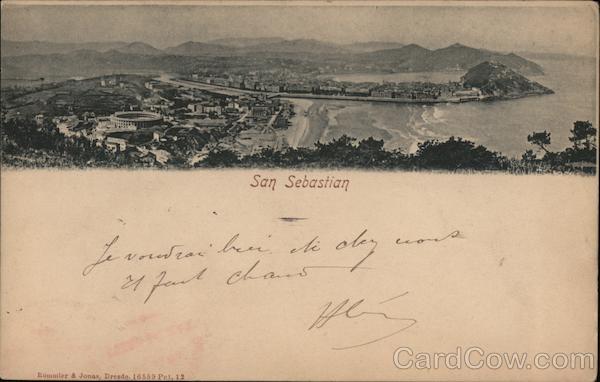 San Sebastian
Je voudrai bien si chez vous
il fait chaud
Römmler & Jonas, Dresde. 16559 Pnt. 12
CardCow.com